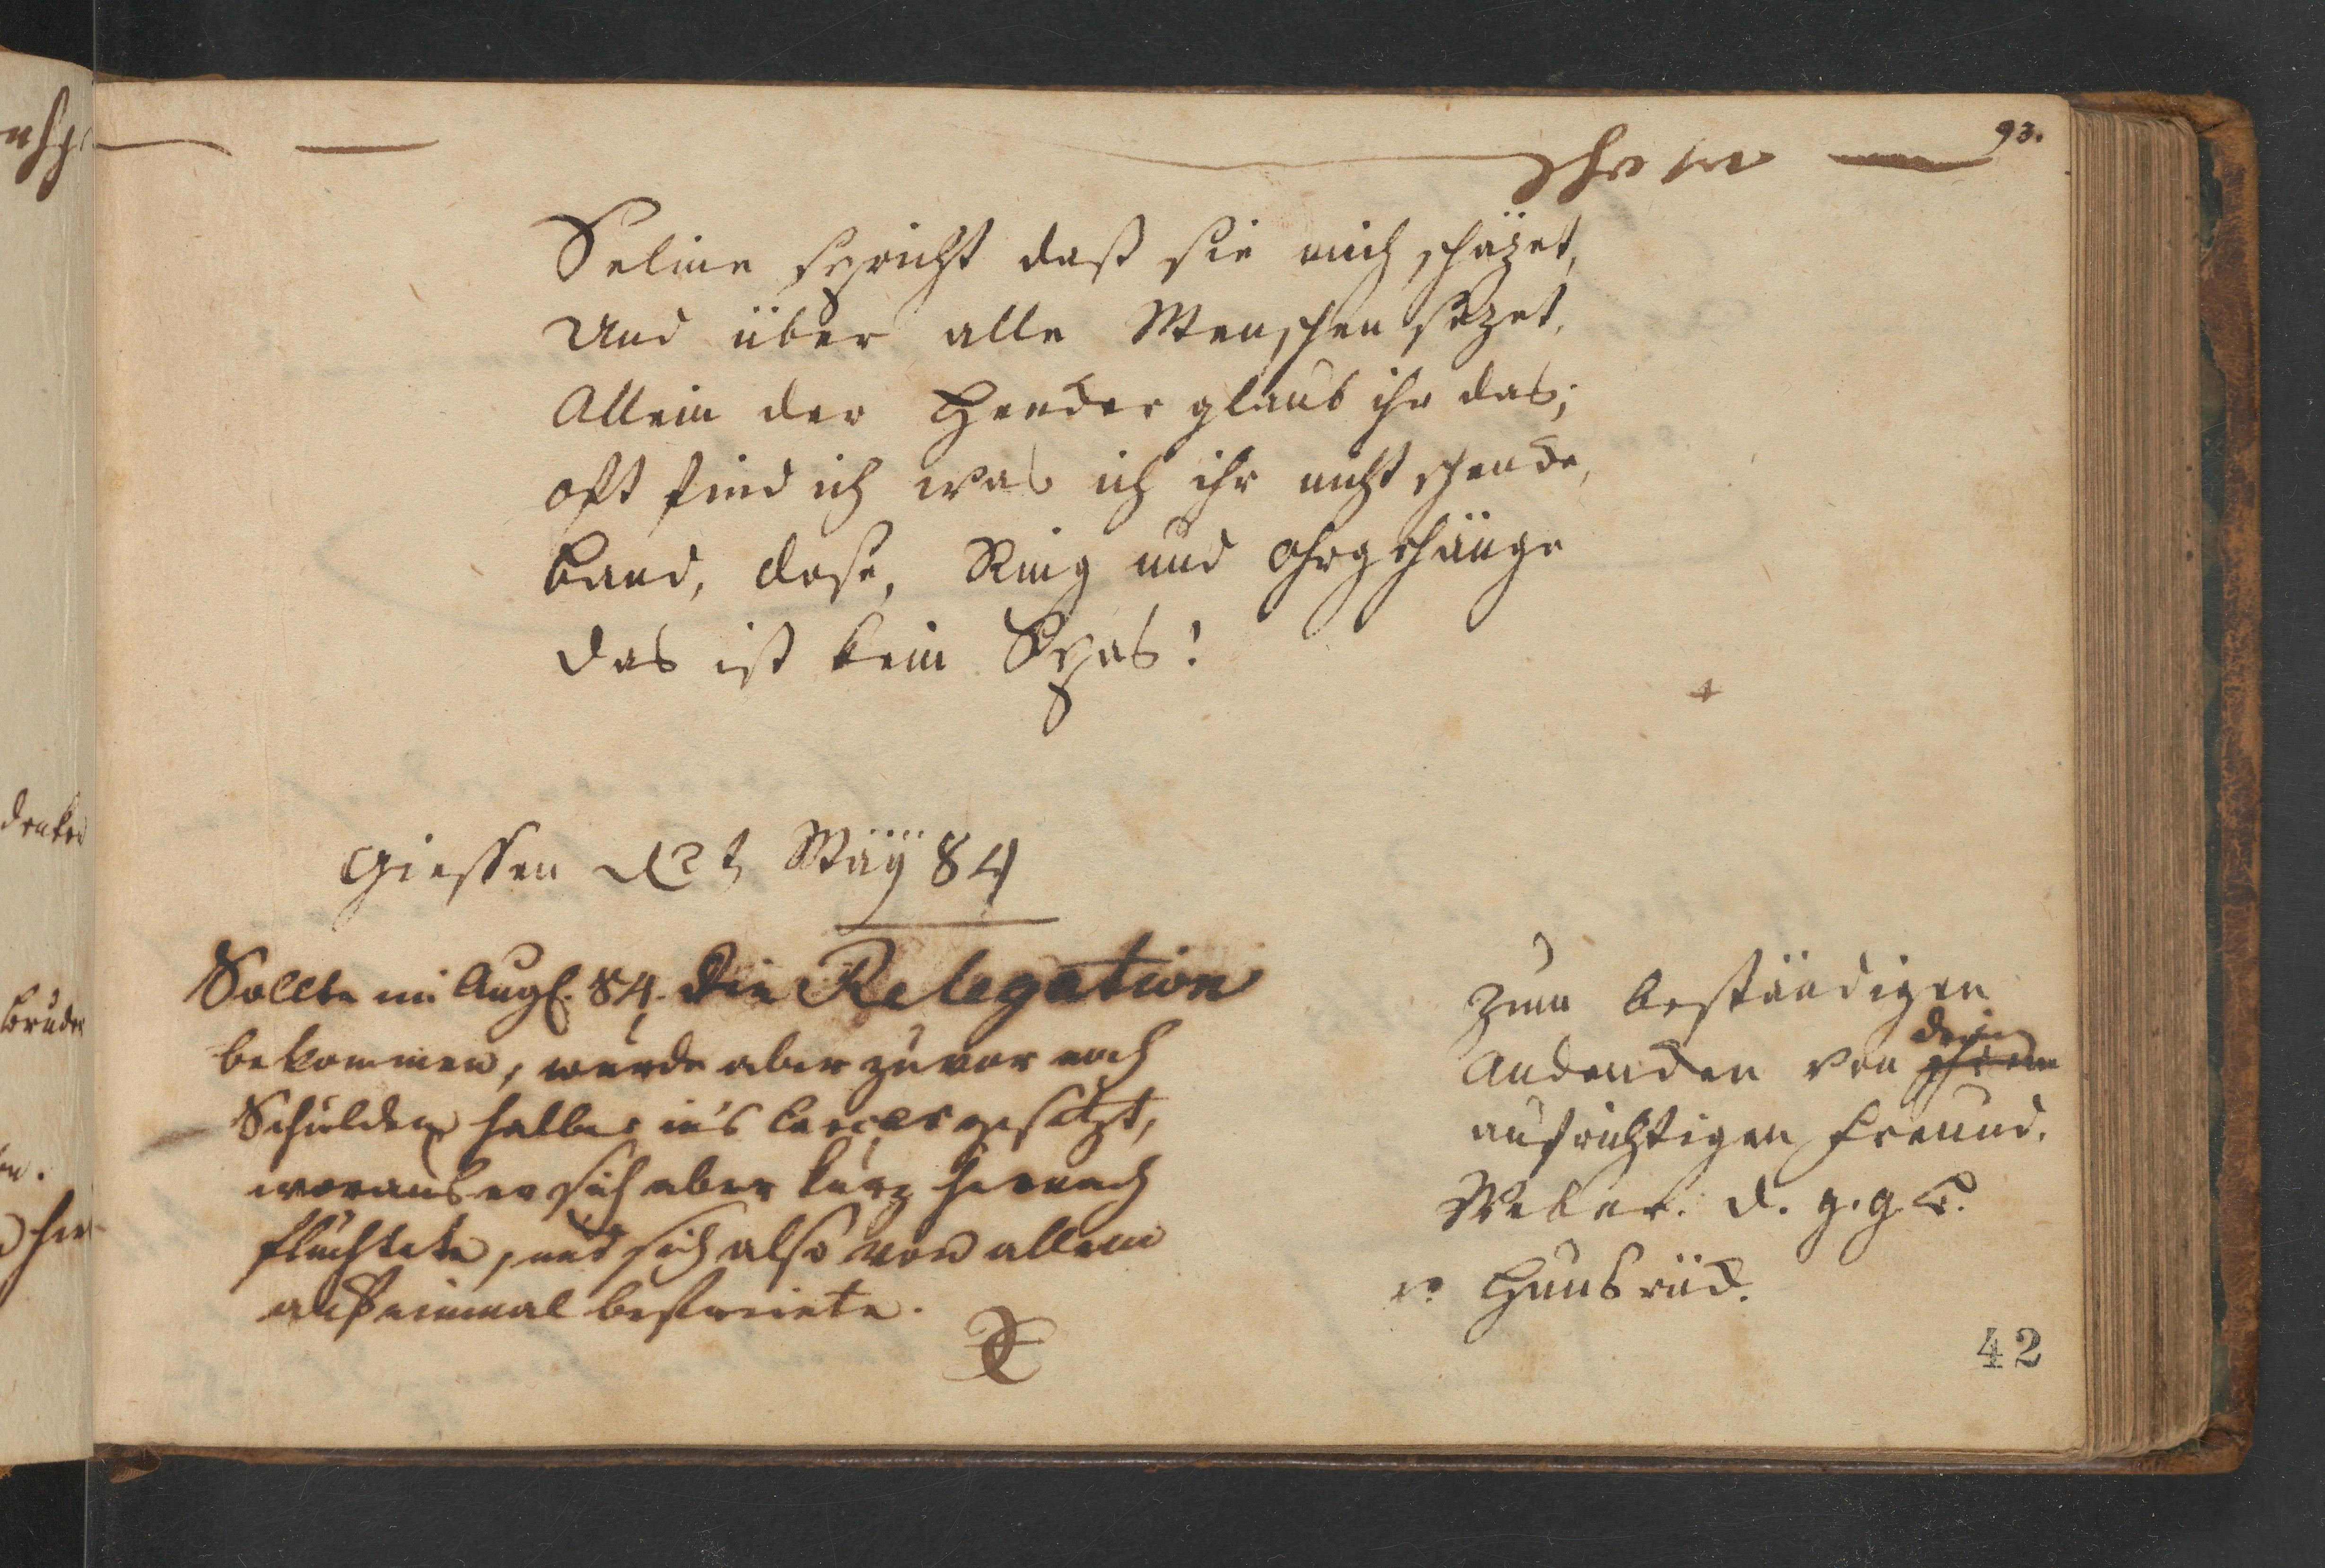 93.
Seline spricht daß sie mich schäzet,
Und über alle Menschen sezet,
Allein der Hencker glaub ihr das;
oft find ich was ich ihr nicht schencke,
Band, dose, Ring und ohrgehänge
das ist kein Spas!
Giessen d 2t May 84
Sollte im Aug. 84. die Relegation
bekommen, wurde aber zuvor noch
Schulden halber in's Carcer gesetzt,
woraus er sich aber kurz hernach
flüchtete, und sich also von allem
auf einmal befreiete.
zum beständigen
Andencken von dein
aufrichtigen Freund.
Weber. d. g. g. B.
v. Hunsrück.
42